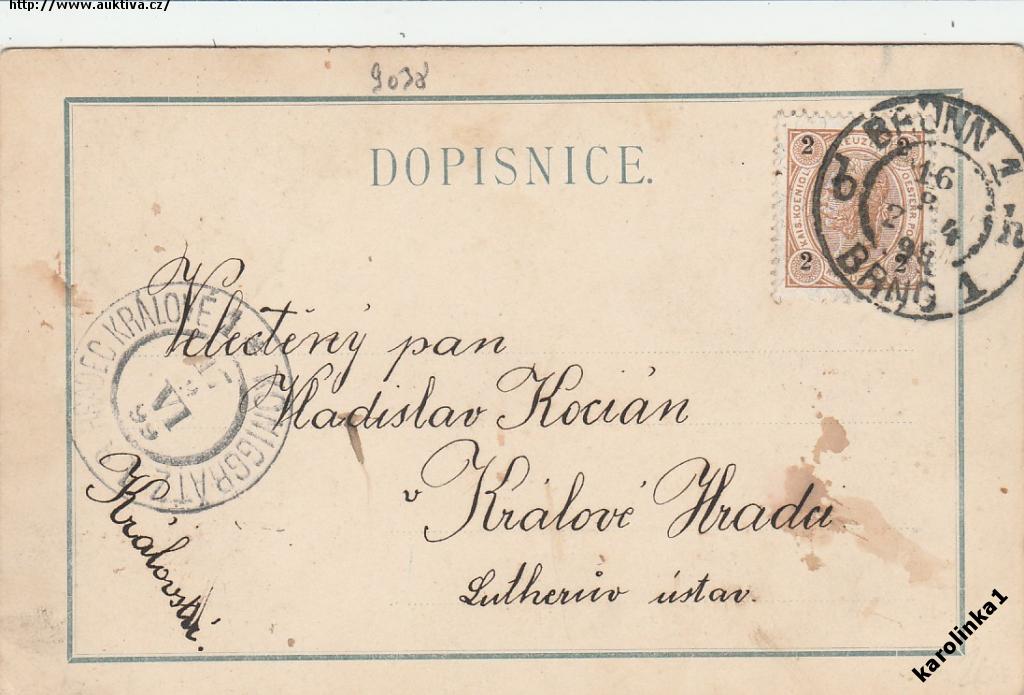 http://www.auktiva.cz/
9038
DOPISNICE.
2 2
KAIS. KOENIGL.
2 2
BRÜNN 1
b h
16
2 4
98
BRNO 1
HRADEC KRÁLOVÉ 1
VI
99
KÖNIGGRÄTZ
Velectěný pan
Vladislav Kocián
v Králové Hradci
Lutherův ústav.
Královští.
karolinka1